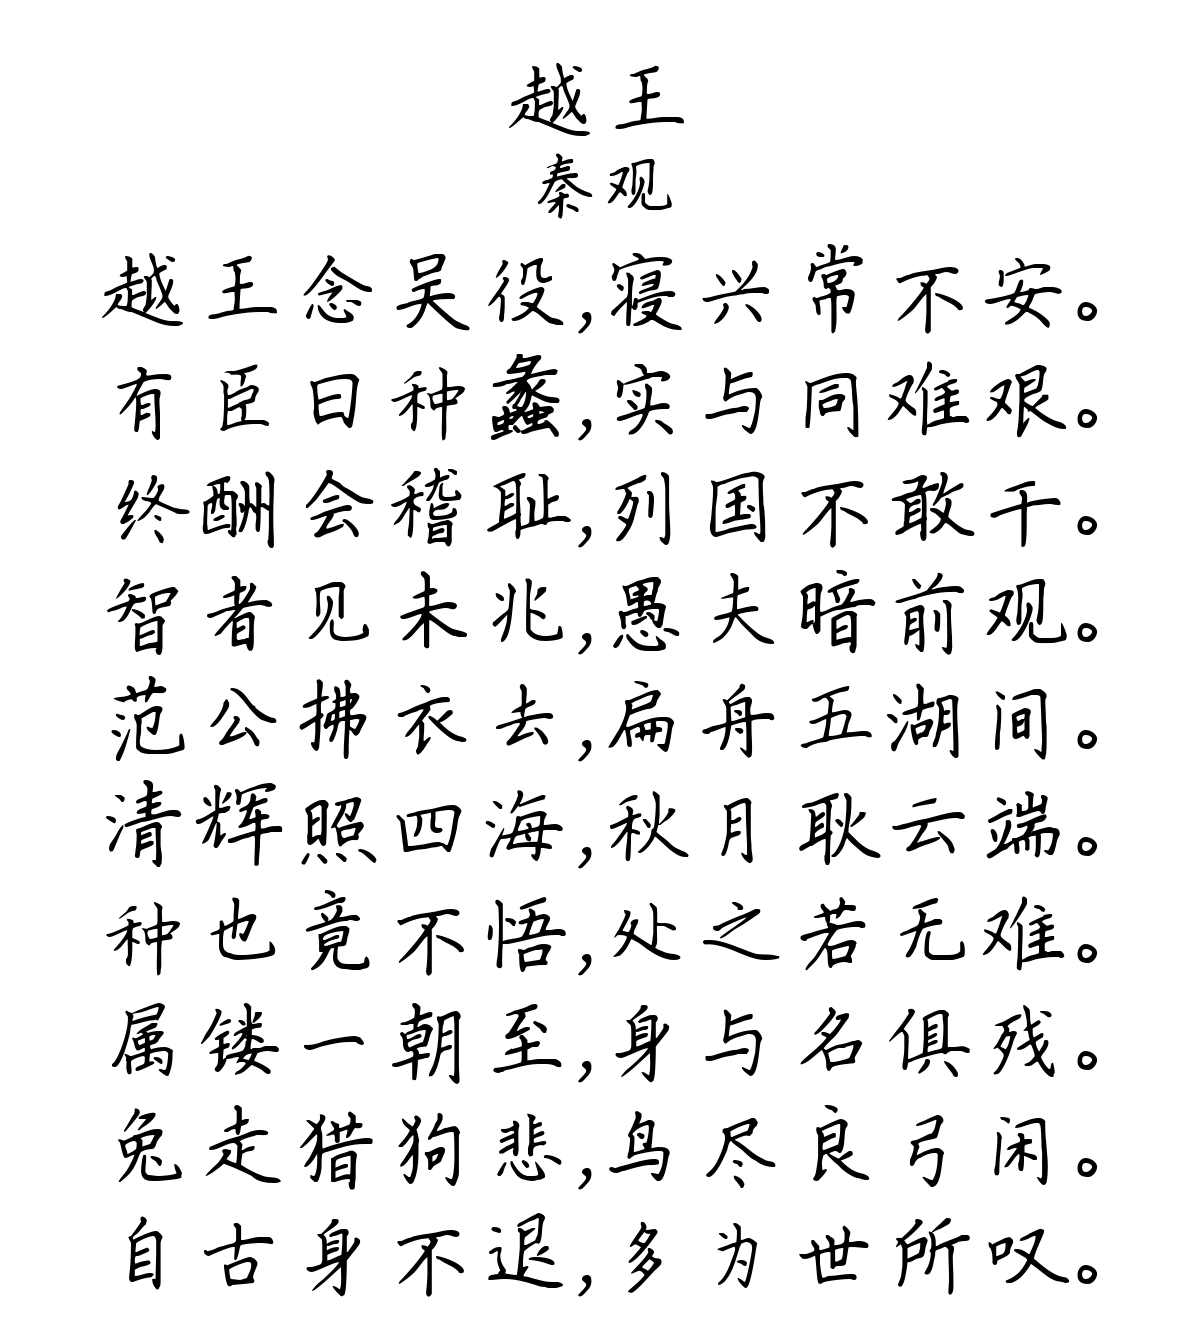 越王
秦观
越王念吴役,寝兴常不安。
有臣曰种蠡,实与同难艰。
终酬会稽耻,列国不敢干。
智者见未兆,愚夫暗前观。
范公拂衣去,扁舟五湖间。
清辉照四海,秋月耿云端。
种也竟不悟,处之若无难。
属镂一朝至,身与名俱残。
兔走猎狗悲,鸟尽良弓闲。
自古身不退,多为世所叹。